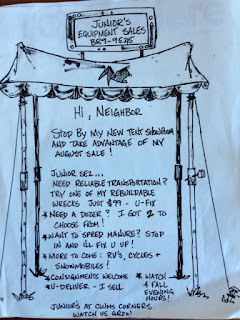 JUNIOR'S
EQUIPMENT SALES
BR9-9575
HI, NEIGHBOR
STOP BY MY NEW TENT SHOWROOM
AND TAKE ADVANTAGE OF MY
AUGUST SALE!
JUNIOR SEZ...
NEED RELIABLE TRANSPORTATION?
TRY ONE OF MY REBUILDABLE
WRECKS JUST $99 - U-FIX
*NEED A DOZER? I GOT 2 TO
CHOOSE FROM!
*WANT TO SPRED MANURE? STOP
IN AND I'LL FIX U UP!
*MORE TO COME: RV'S, CYCLES +
SNOWMOBILES!
*CONSIGNMENTS WELCOME
U-DELIVER - I SELL
*WATCH
4 FALL
EVENING
HOURS!
JUNIORS AT CLUMS CORNERS
WATCH US GROW